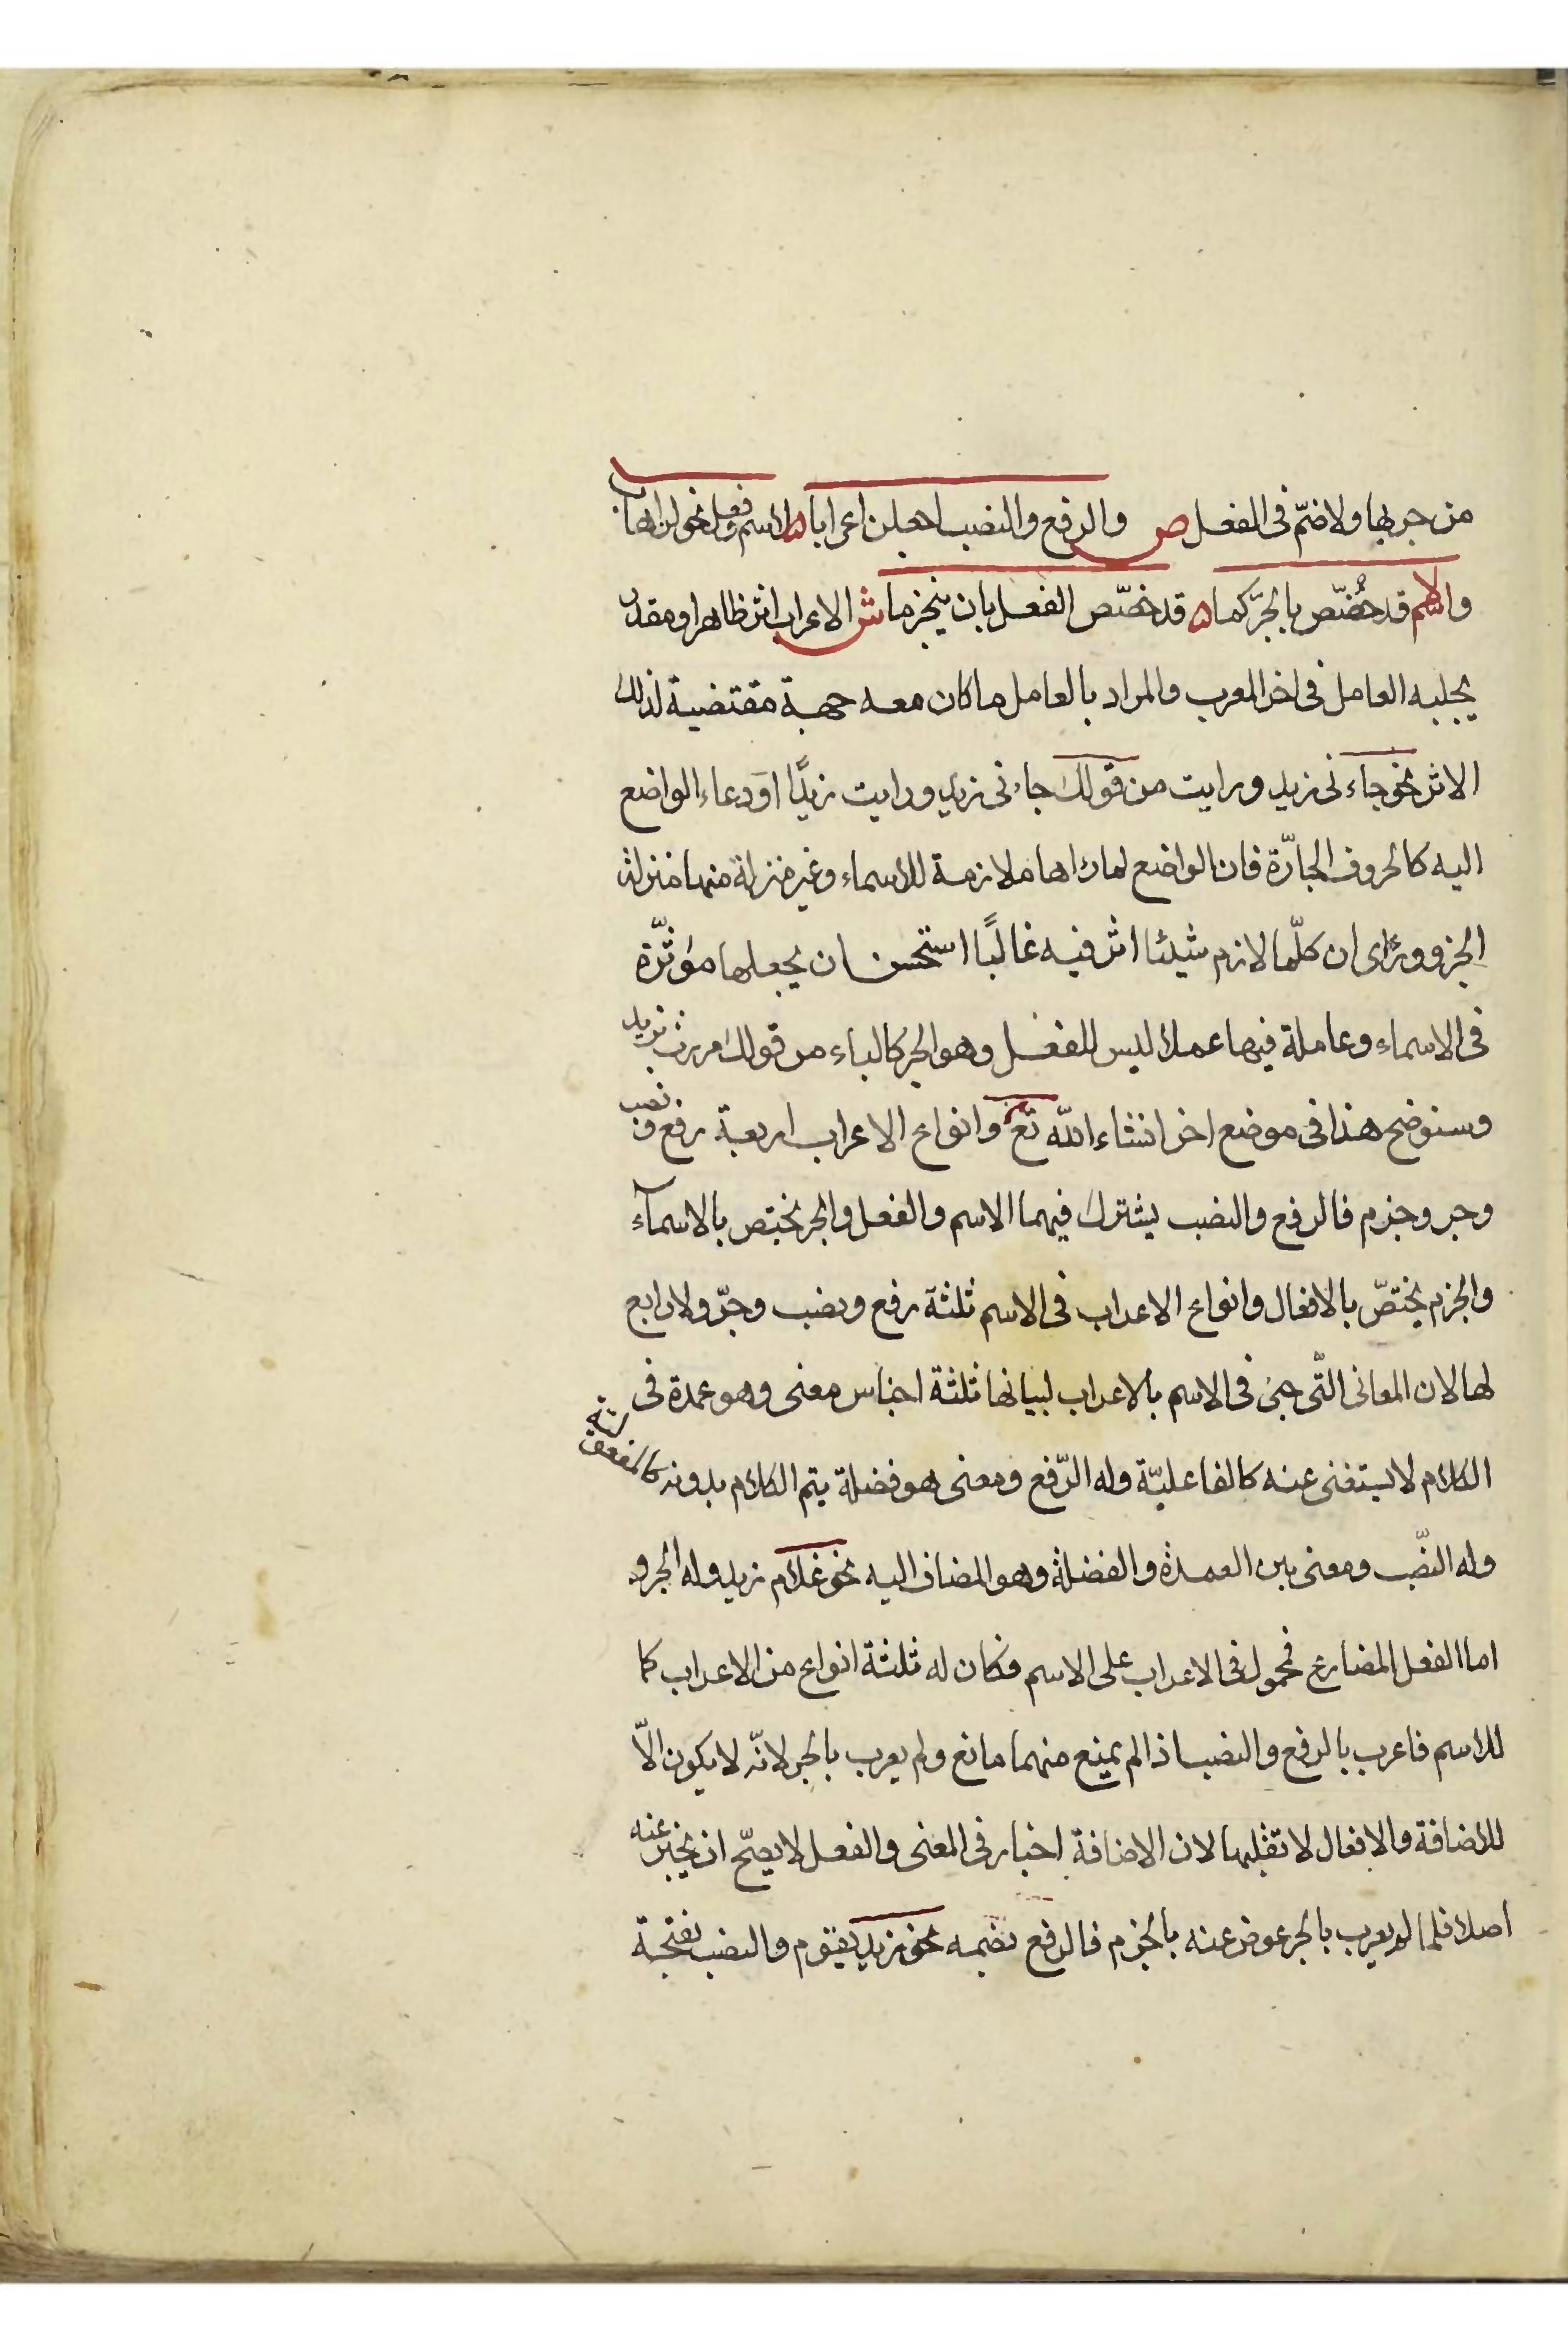 من جر بها ولا ضمّ فى الفعل ص والرفع والنصب اجعلن اعرابا ه لاسم وفعل نحو لن اهابا
والاسم قد خُصّص بالجرّ كما ه قد خصّص الفعل بان ينجزما ش الاعراب اثر ظاهر او مقدر
يجلبه العامل فى اخر المعرب والمراد بالعامل ما كان معه جهة مقتضية لذلك
الاثر نحو جاءنى زيد ورايت من قولك جاءنى زيد ورايت زيدًا او دعاء الواضع
اليه كالحروف الجارّة فان الواضع لما راها ملازمة للاسماء وغير منزلة منها منزلة
الجزو وراى ان كلّما لازم شيئا اثر فيه غالبًا استحسن ان يجعلها مؤثّرة
فى الاسماء وعاملة فيها عملا ليس للفعل وهو الجر كالباء من قولك مررت بزيد
وسنوضح هذا فى موضع اخر انشاء الله تع وانواع الاعراب اربعة رفع ونصب
وجر وجزم فالرفع والنصب يشترك فيهما الاسم والفعل والجر يختص بالاسمآء
والجزم يختصّ بالافعال وانواع الاعراب فى الاسم ثلثة رفع ونصب وجرّ ولا رابع
لها لان المعانى التّى جئ فى الاسم بالاعراب لبيانها ثلثة اجناس معنى وهو عمدة فى
الكلام لا يستغنى عنه كالفاعليّة وله الرّفع ومعنى هو فضلة يتم الكلام بدونه كالمفعولية
وله النصّب ومعنى بين العمدة والفضلة وهو المضاف اليه نحو غلام زيد وله الجر و
اما الفعل المضارع فمحمول فى الاعراب على الاسم فكان له ثلثة انواع من الاعراب كما
للاسم فاعرب بالرفع والنصب اذ لم يمنع منهما مانع ولم يعرب بالجر لانّه لا يكون الّا
للاضافة والافعال لا تقبلها لان الاضافة اخبار فى المعنى والفعل لا يصحّ ان يخبر عنه
اصلا فلما لم يعرب بالجر عوض عنه بالجزم فالرفع بضمه نحو زيد يقوم والنصب بفتحة